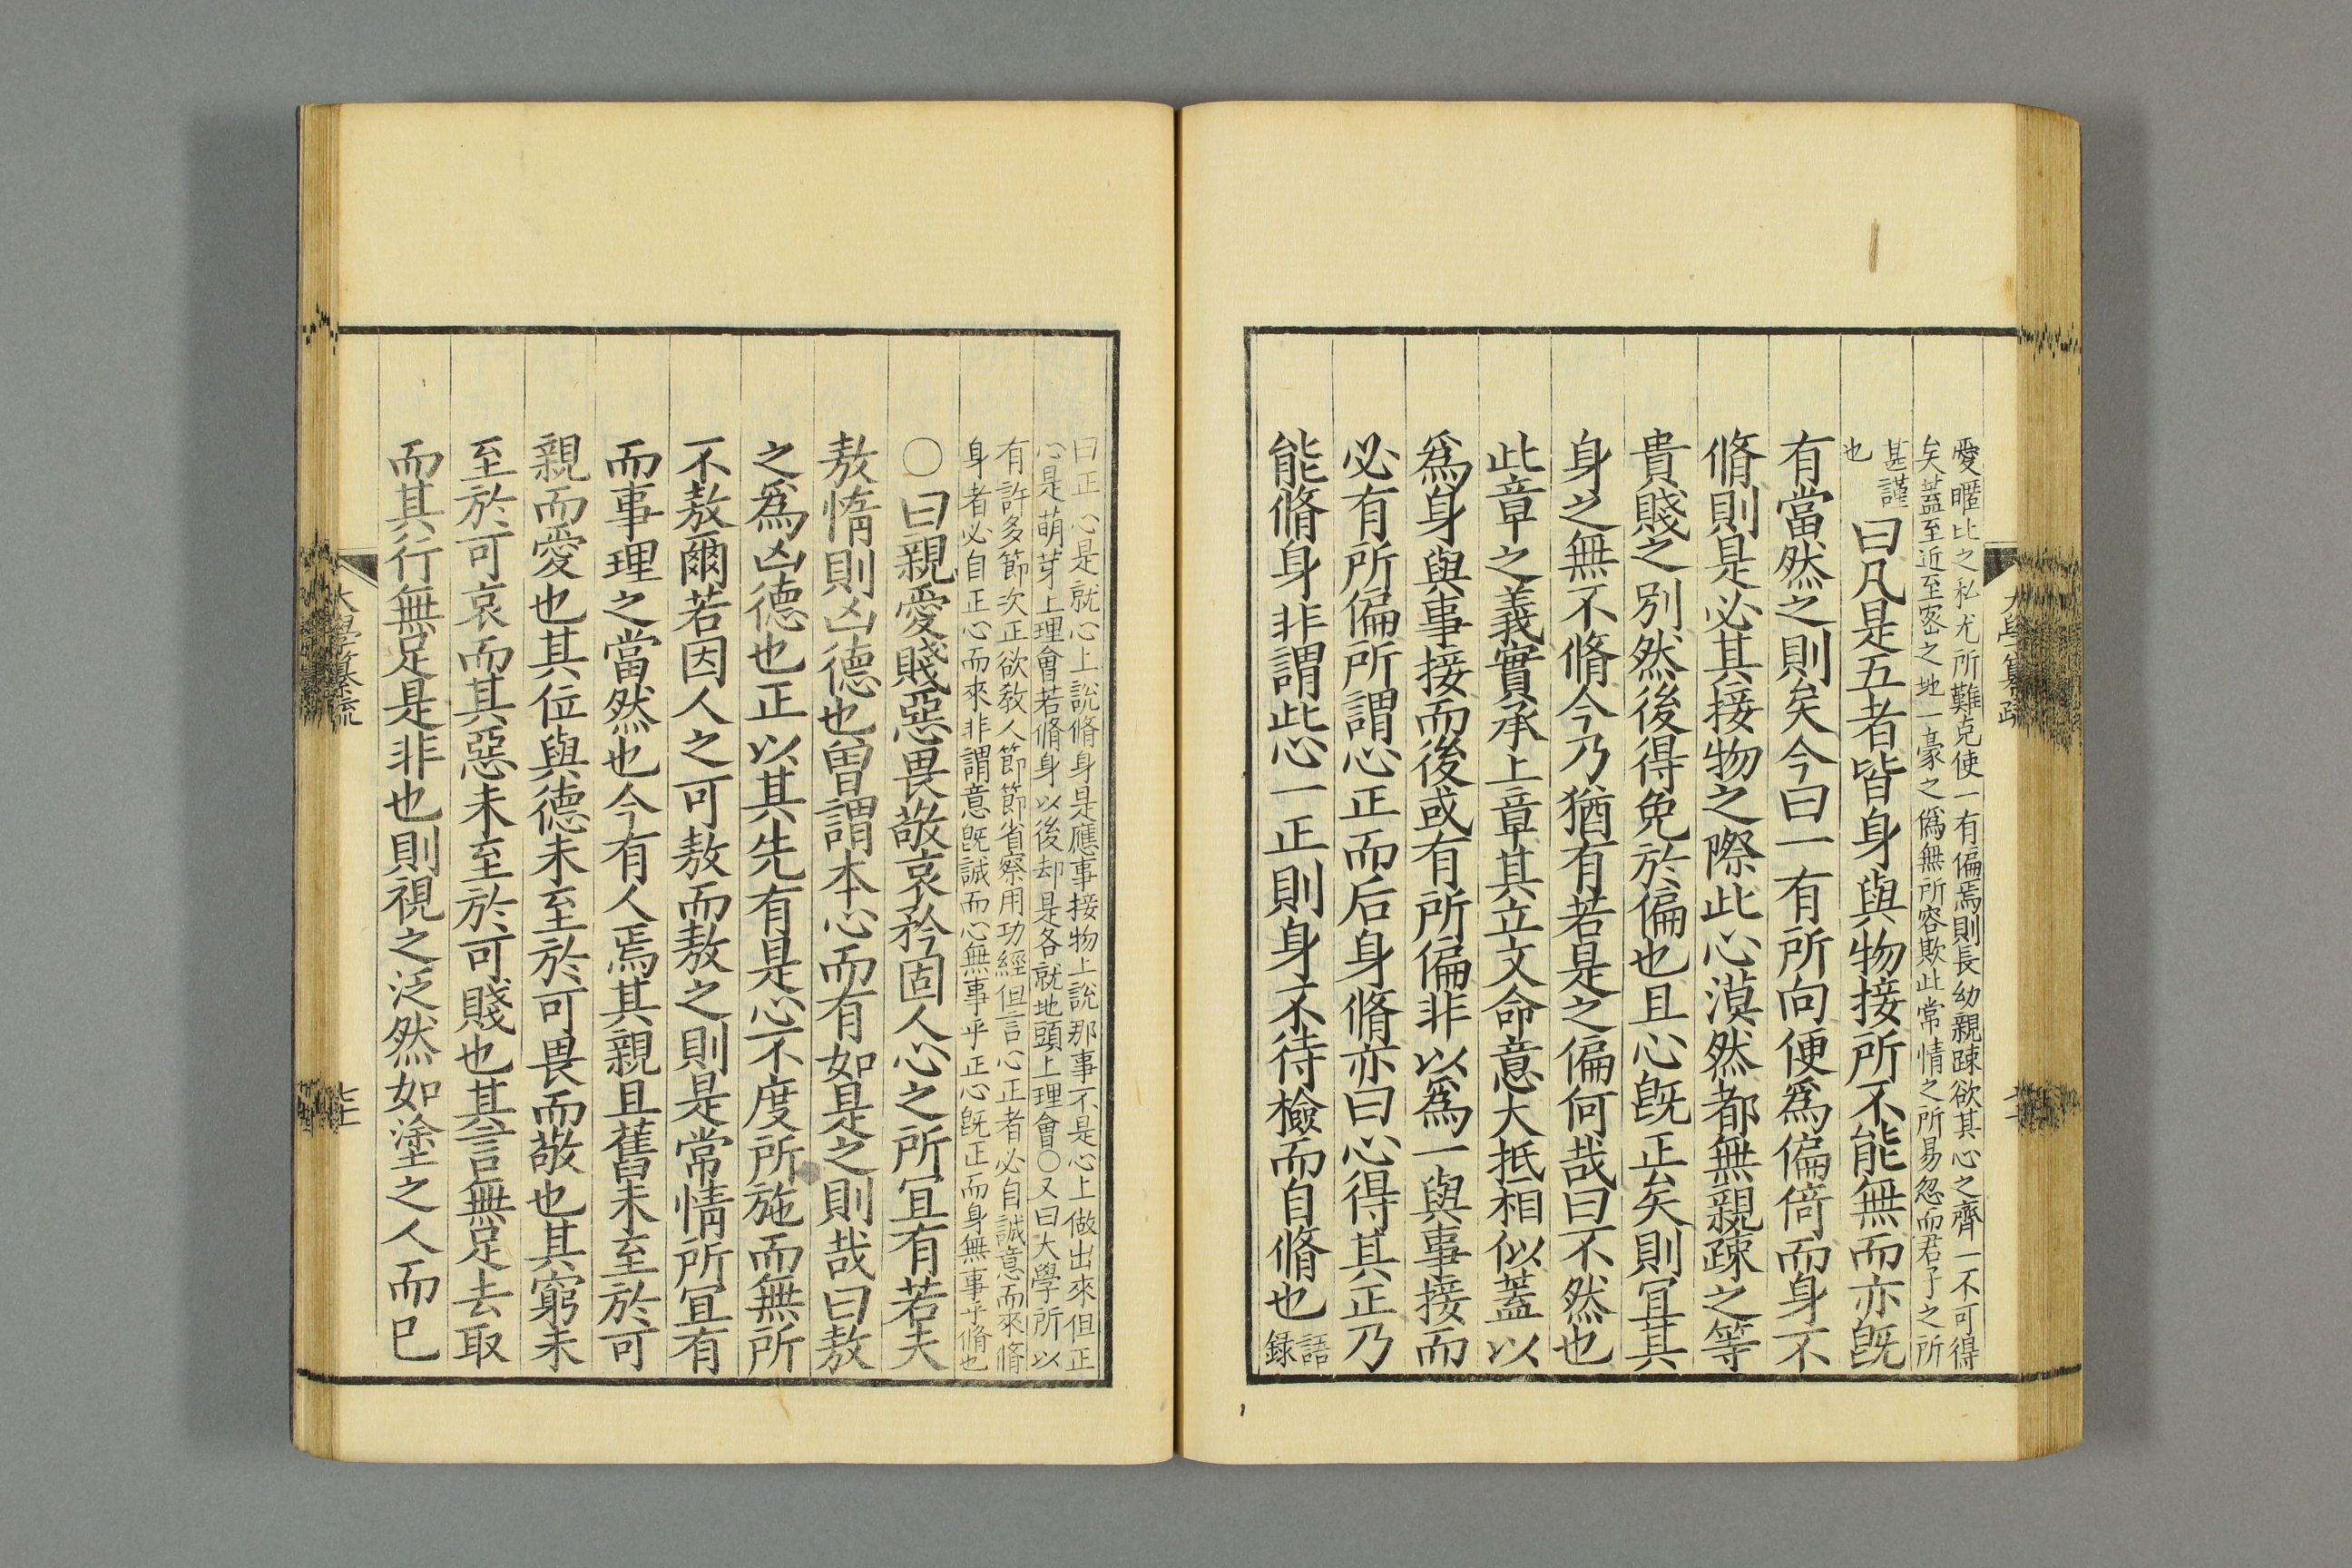 愛暱比之私尤所難克使一有偏焉則長幼親踈欲其心之齊一不可得
矣蓋至近至宻之地一豪之僞無所容欺此常情之所易忽而君子之所
甚謹
也
曰凡是五者皆身與物接所不能無而亦旣
有當然之則矣今曰一有所向便爲偏倚而身不
脩則是必其接物之際此心漠然都無親踈之等
貴賤之別然後得免於偏也且心旣正矣則冝其
身之無不脩今乃猶有若是之偏何哉曰不然也
此章之義實承上章其立文命意大抵相似蓋以
爲身與事接而後或有所偏非以爲一與事接而
必有所偏所謂心正而后身脩亦曰心得其正乃
能脩身非謂此心一正則身不待檢而自脩也
語
録
大學纂疏
曰正心是就心上說脩身是應事接物上說那事不是心上做出來但正
心是萌芽上理會若脩身以後却是各就地頭上理會○又曰大學所以
有許多節次正欲敎人節節省察用功經但言心正者必自誠意而來脩
身者必自正心而來非謂意旣誠而心無事乎正心旣正而身無事乎脩也
○曰親愛賤惡畏敬哀矜固人心之所冝有若夫
敖惰則凶德也曽謂本心而有如是之則哉曰敖
之爲凶德也正以其先有是心不度所施而無所
不敖爾若因人之可敖而敖之則是常情所冝有
而事理之當然也今有人焉其親且舊未至於可
親而愛也其位與德未至於可畏而敬也其窮未
至於可哀而其惡未至於可賤也其言無足去取
而其行無足是非也則視之泛然如塗之人而已
大學纂疏